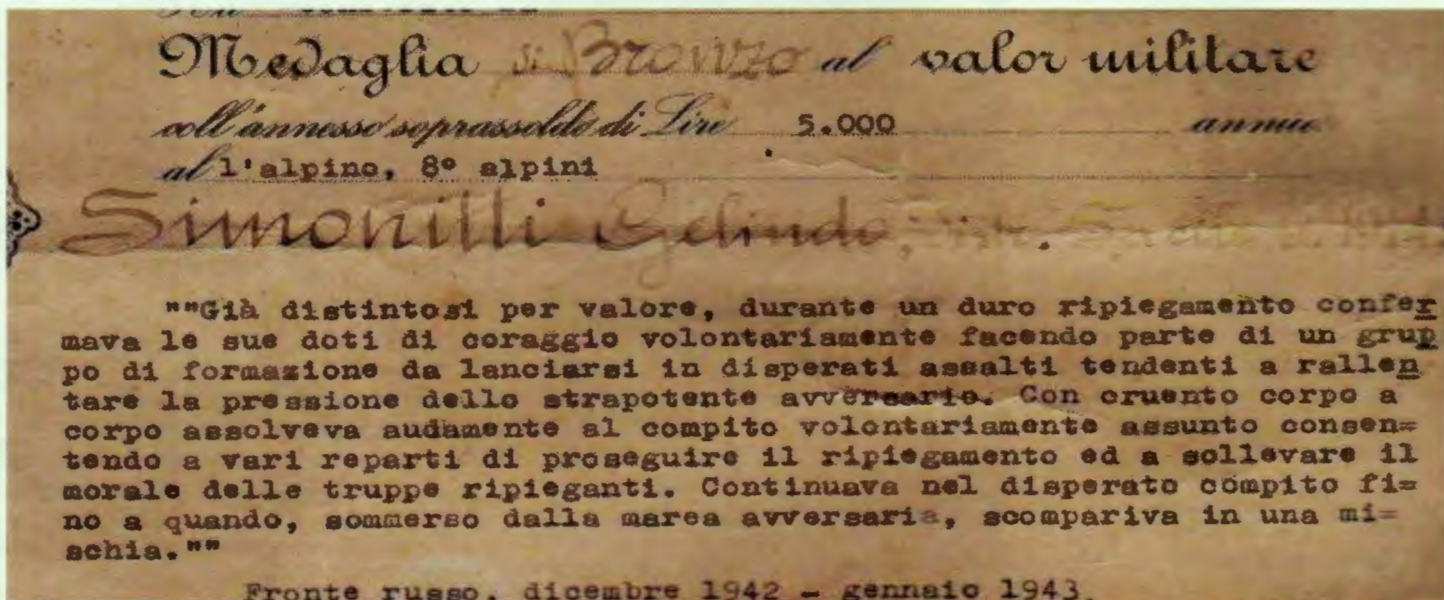 Medaglia di Bronzo al valor militare
coll'annesso soprassoldo di Lire 5.000 annue
al l'alpino, 8° alpini
Simonilli Gelindo,
""Già distintosi per valore, durante un duro ripiegamento confer
mava le sue doti di coraggio volontariamente facendo parte di un grup
po di formazione da lanciarsi in disperati assalti tendenti a rallen
tare la pressione dello strapotente avversario. Con cruento corpo a
corpo assolveva audamente al compito volontariamente assunto consen=
tendo a vari reparti di proseguire il ripiegamento ed a sollevare il
morale delle truppe ripieganti. Continuava nel disperato compito fi=
no a quando, sommerso dalla marea avversaria, scompariva in una mi=
schia.""
Fronte russo, dicembre 1942 - gennaio 1943.